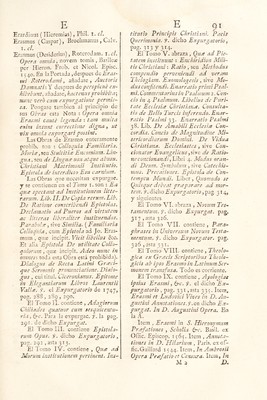 E
E 91
Erardinus (Hieronimus), Phil. 1. cl.
Erasmus (Caspar), Boochmanus, Calv.
1. cl.
Erasmus (Desiderius), Roterodam. 1. cl.
Opera omnia, novem tomis, Basileæ
per Hieron. Frob. et Nicol. Episc.
1540. En la Portada, despues de Erasmi Roterodami, añadase, Auctoris
Damnati: Y despues de perscripta exhibent,
añadase, hactenus prohibita;
nunc verò cum expurgatione permissa.
Pongase tambien al principio de
sus Obras esta Nota: Opera omnia
Erasmi cautè legenda: tam multa
enim insunt correctione digna, ut
vix omnia expurgari possint.
Las Obras de Erasmo enteramente
prohib. son: Colloquia Familiaria.
Moria, seu Stultitiæ Encomium. Lingua,
sea de Linguæ usu atque abusu.
Christiani Matrimonii Institutio.
Epistola de interdicto Esu carnium.
Las Obras que necesitan expurgar,
y se contienen en el Tomo I. son: Ea
quæ spectant ad Institutionem literarum.
Lib. II. De Copia rerum. Lib.
De Ratione conscribendi Epistolas.
Declamatio ad Pueros ad virtutem
ac literas liberaliter instituendos.
Parabolæ, sive Similia. (Familiaria
Colloquia, cum Epistola ad Jo. Erasmium,
quæ incipit, Vicit libellus &c.
Et alia Epistola De utilitate Colloquiorum,
quæ incipit, Adeo nunc in
omnes: toda esta Obra está prohibida).
Dialogus de Recta Latini Græcique
Sermonis pronuntiatione. Dialogus,
cui titul. Ciceronianus. Epitome
in Elegantiarum Libros Laurentii
Vallæ. V. el Expurgatorio de 1747,
pag. 288, 289, 290.
El Tomo II. contiene, Adagiorum
Chiliades quatuor cum sesquicenturia,
&c. Para la expurgac. V. la pag.
291. de dicho Expurgat.
El Tomo III. contiene Epistolarum
Opus. V. dicho Expurgatorio,
pag. 291, asta 313.
El Tomo IV. contiene, Quæ ad
Morum institutionem pertinent. Institutio
Principis Christiani. Pacis
Querimonia. V. dicho Expurgatorio,
pag. 313 y 314.
El Tomo V. abraza, Quæ ad Pietatem
instituunt: Enchiridion Militis
Christiani: Ratio, seu Methodus
compendio perveniendi ad veram
Theologiam. Exomologesis, sive Modus
confitendi. Enarratio primi Psalmi.
Commentarius in Psalmum 2. Concio
in 4. Psalmum. Libellus de Puritate
Ecclesiæ Christianæ. Consultatio
de Bello Turcis inferendo. Enarratio
Psalmi 33. Enarratio Psalmi
38. Lib. De Amabili Ecclesiæ Concordia.
Concio de Magnitudine Misericordiarum
Domini. De Vidua
Christiana. Ecclesiastes, sive Concionator
Evangelicus, sive de Ratione
concionandi, Libri 4. Modus orandi
Deum. Symbolum sive Catechismus.
Precationes. Epistola de Contemptu
Mundi. Liber, Quomodo se
Quisque debeat præparare ad mortem.
V. dicho Expurgatorio, pag. 314,
y siguientes.
El Tomo VI. abraza, Novum Testamentum.
V. dicho Expurgat. pag.
321, asta 326.
El Tomo VII. contiene, Paraphrases
in Universum Novum Testamentum.
V. dicho Expurgator. pag.
326, asta 331.
El Tomo VIII. contiene, Theologica
ex Græcis Scriptoribus Theologicis
ab ipso Erasmo in Latinum Sermonem
transfusa. Todo es corriente.
El Tomo IX. contiene, Apologias
ipsius Erasmi, &c. V. el dicho Expurgatorio,
pag. 331, asta 351. Item,
Erasmi et Ludovici Vives in D. Augustini
Annotationes. V. en dicho Expurgat.
In D. Augustini Opera. En
la A.
Item, Erasmi in S. Hieronymum
Præfationes, Scholia &c. Basil. ex
Offic. Episcop. 1565. Item, Annotationes
in D. Hilarium, Paris. ex offic.
Guillard 1544. Item, In Ambrosii
Opera Præfatio et Censura. Item, In
M 2 D.